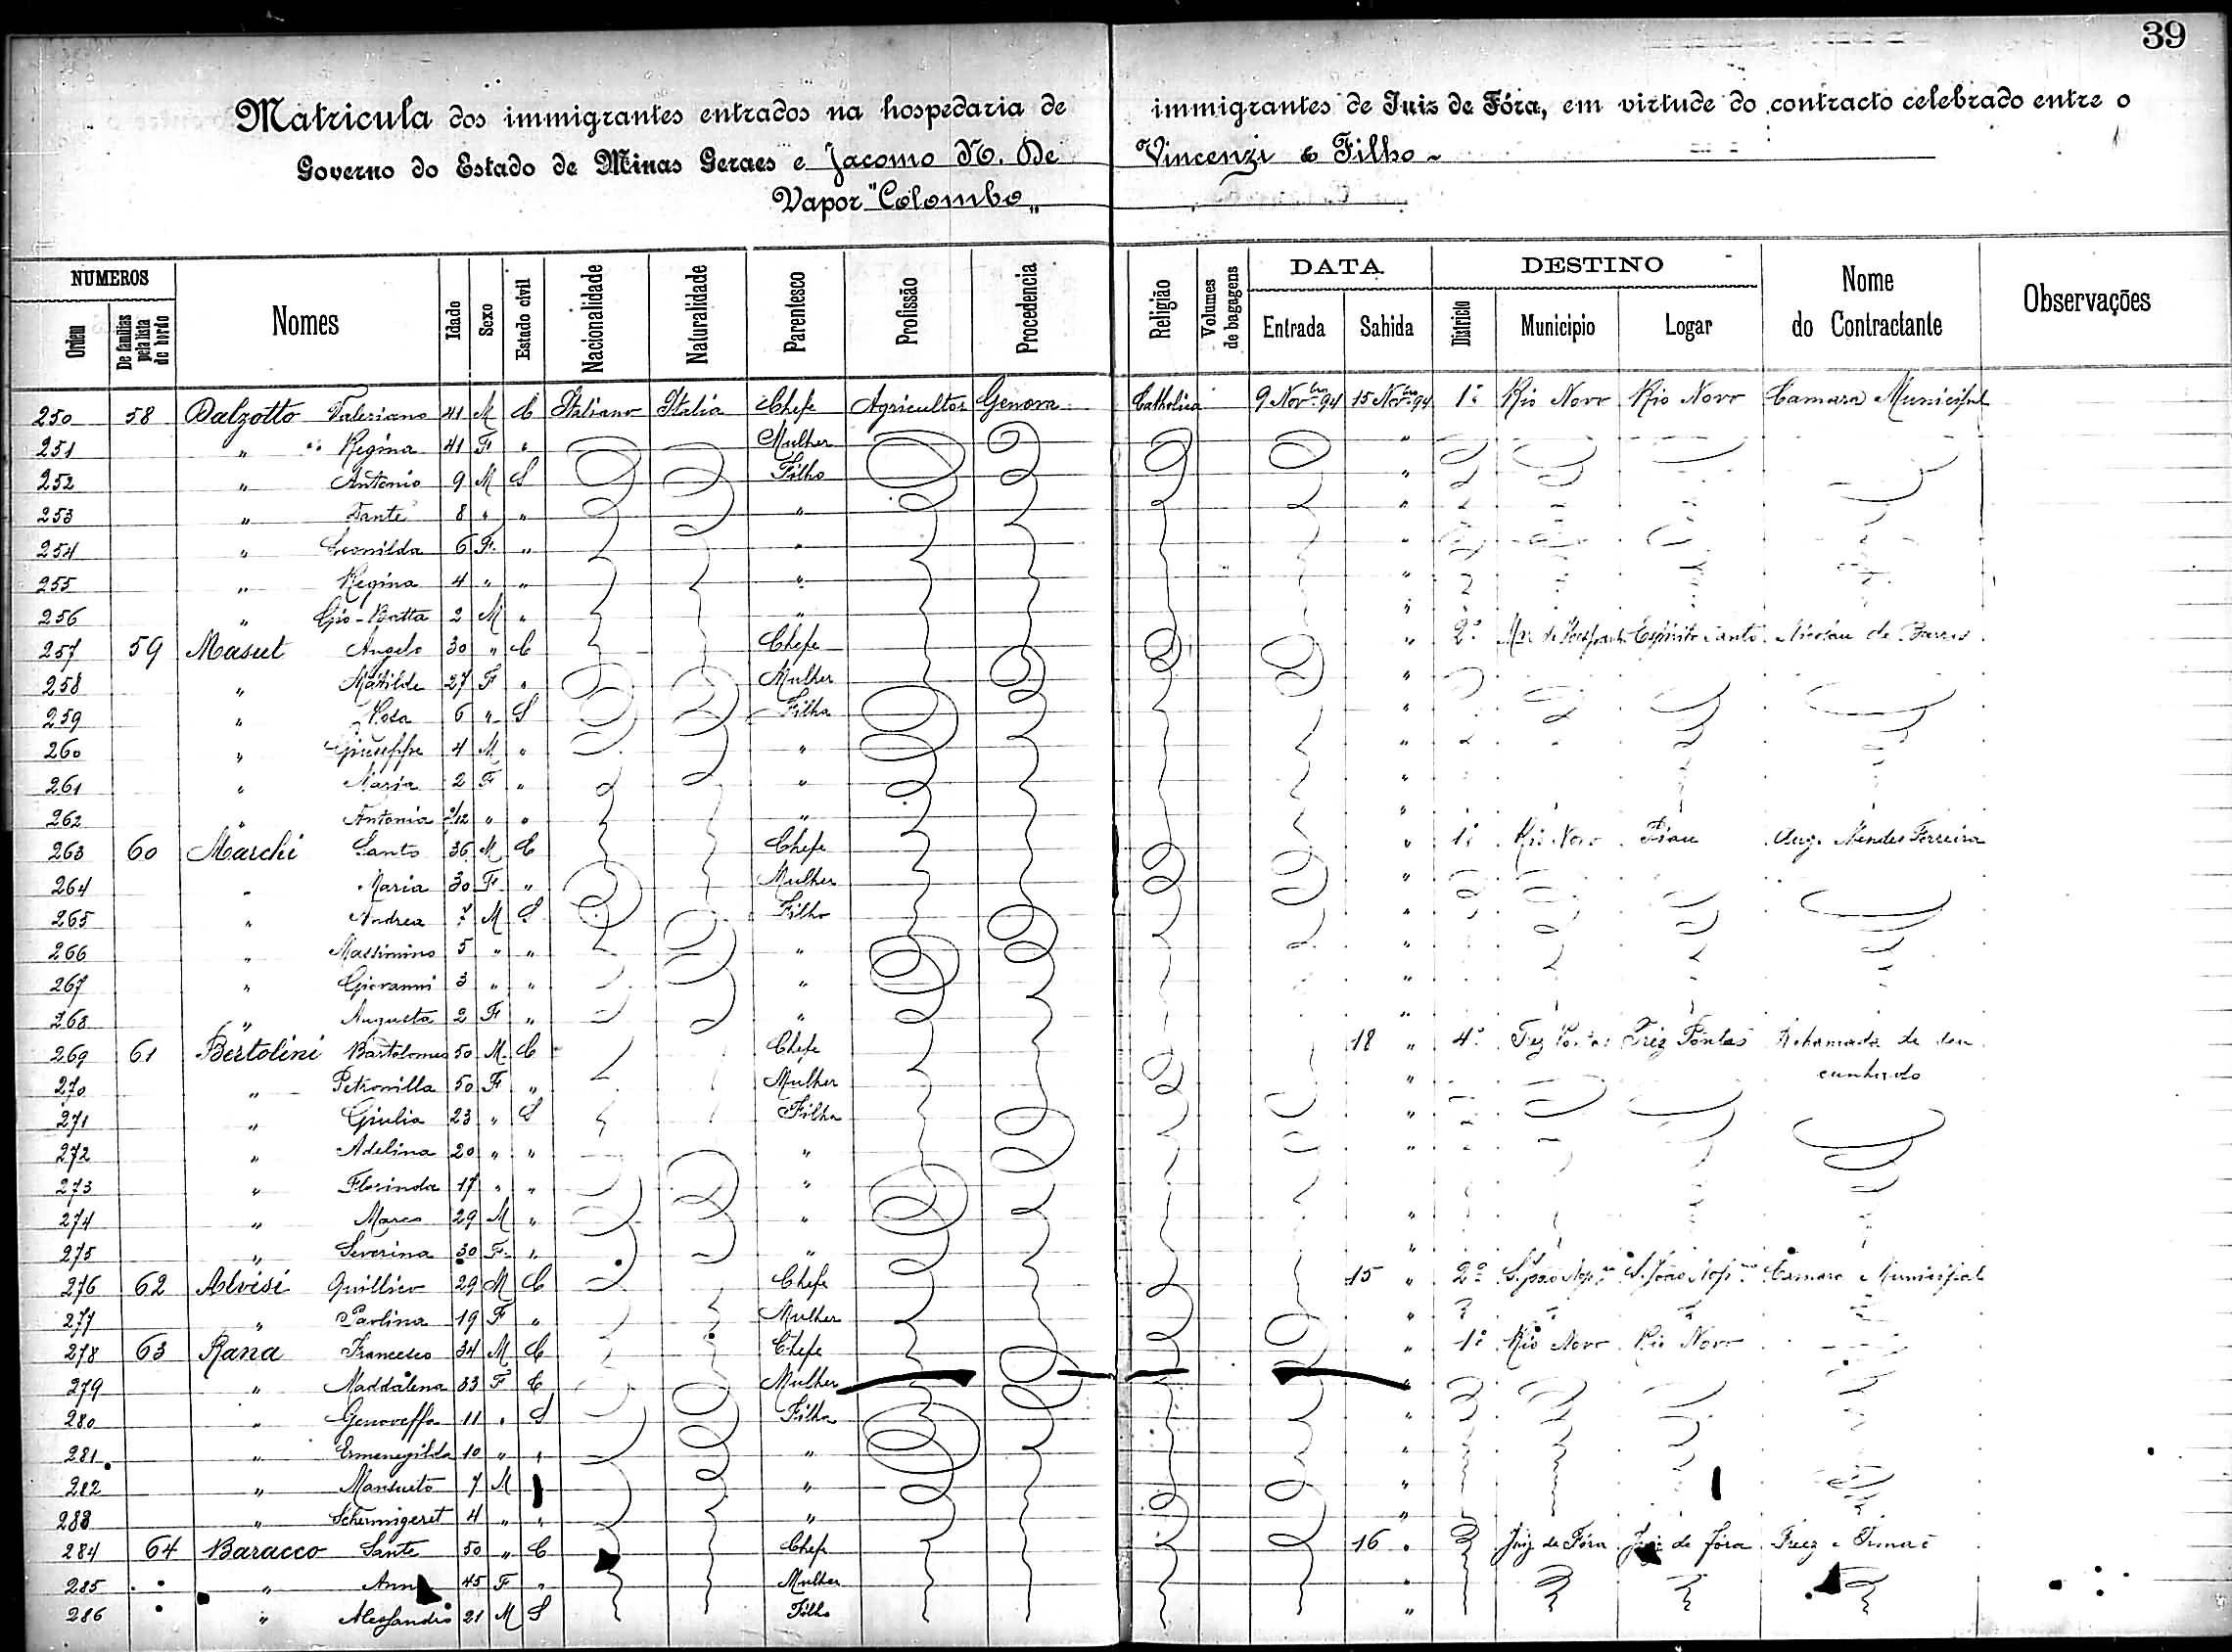 39
Matricula dos immigrantes entrados na hospedaria de immigrantes de Juiz de Fóra, em virtude do contracto celebrado entre o
Governo do Estado de Minas Geraes e Jacomo N. De Vincenzi & Filho
Vapor "Colombo"
NUMEROS
Ordem
De familias pela lista de bordo
Nomes
Idade
Sexo
Estado civil
Nacionalidade
Naturalidade
Parentesco
Profissão
Procedencia
Religião
Volumes de bagagens
DATA
Entrada
Sahida
DESTINO
Districto
Municipio
Logar
Nome do Contractante
Observações
250 58 Dalzotto Valeriano 41 M C Italiano Italia Chefe Agricultor Genova Catholica 9 Novbro 94 15 Novbro 94 1º Rio Novo Rio Novo Camara Municipal
251 " Regina 41 F " Mulher "
252 " Antonio 9 M S Filho "
253 " Sante 8 " " " "
254 " Leonilda 6 F " " "
255 " Regina 4 " " " "
256 " Gio-Batta 2 M " " "
257 59 Masut Angelo 30 " C Chefe " 2º Espirito Santo Nicolau de
258 " Matilde 27 F " Mulher "
259 " Rosa 6 " S Filha "
260 " Giuseppe 4 M " " "
261 " Maria 2 F " " "
262 " Antonia 2/12 " " " "
263 60 Marchi Santo 36 M C Chefe " 1º Rio Novo Piau Aug. Mendes Ferreira
264 " Maria 30 F " Mulher "
265 " Andrea 7 M S Filho "
266 " Massimino 5 " " " "
267 " Giovanni 3 " " " "
268 " Augusta 2 F " " "
269 61 Bertolini Bartolomeo 50 M C Chefe 18 " 4º Trez Pontas Trez Pontas A chamada de seu
270 " Petronilla 50 F " Mulher " cunhado
271 " Giulia 23 " S Filha "
272 " Adelina 20 " " " "
273 " Florinda 17 " " "
274 " Marco 29 M " " "
275 " Severina 30 F " " "
276 62 Alvisi Quillico 29 M C Chefe 15 " 2º S. João Nep. S. João Nep. Camara Municipal
277 " Paolina 19 F " Mulher "
278 63 Rana Francesco 34 M C Chefe " 1º Rio Novo Rio Novo
279 " Maddalena 33 F C Mulher "
280 " Genoveffa 11 " S Filha "
281 " Ermenegilda 10 " " " "
282 " Mansueto 7 M " "
283 " Schermigeret 4 " " " "
284 64 Baracco Sante 50 " C Chefe 16 " Juiz de Fóra Juiz de Fóra
285 " Anna 45 F " Mulher "
286 " Alessandro 21 M S Filho "